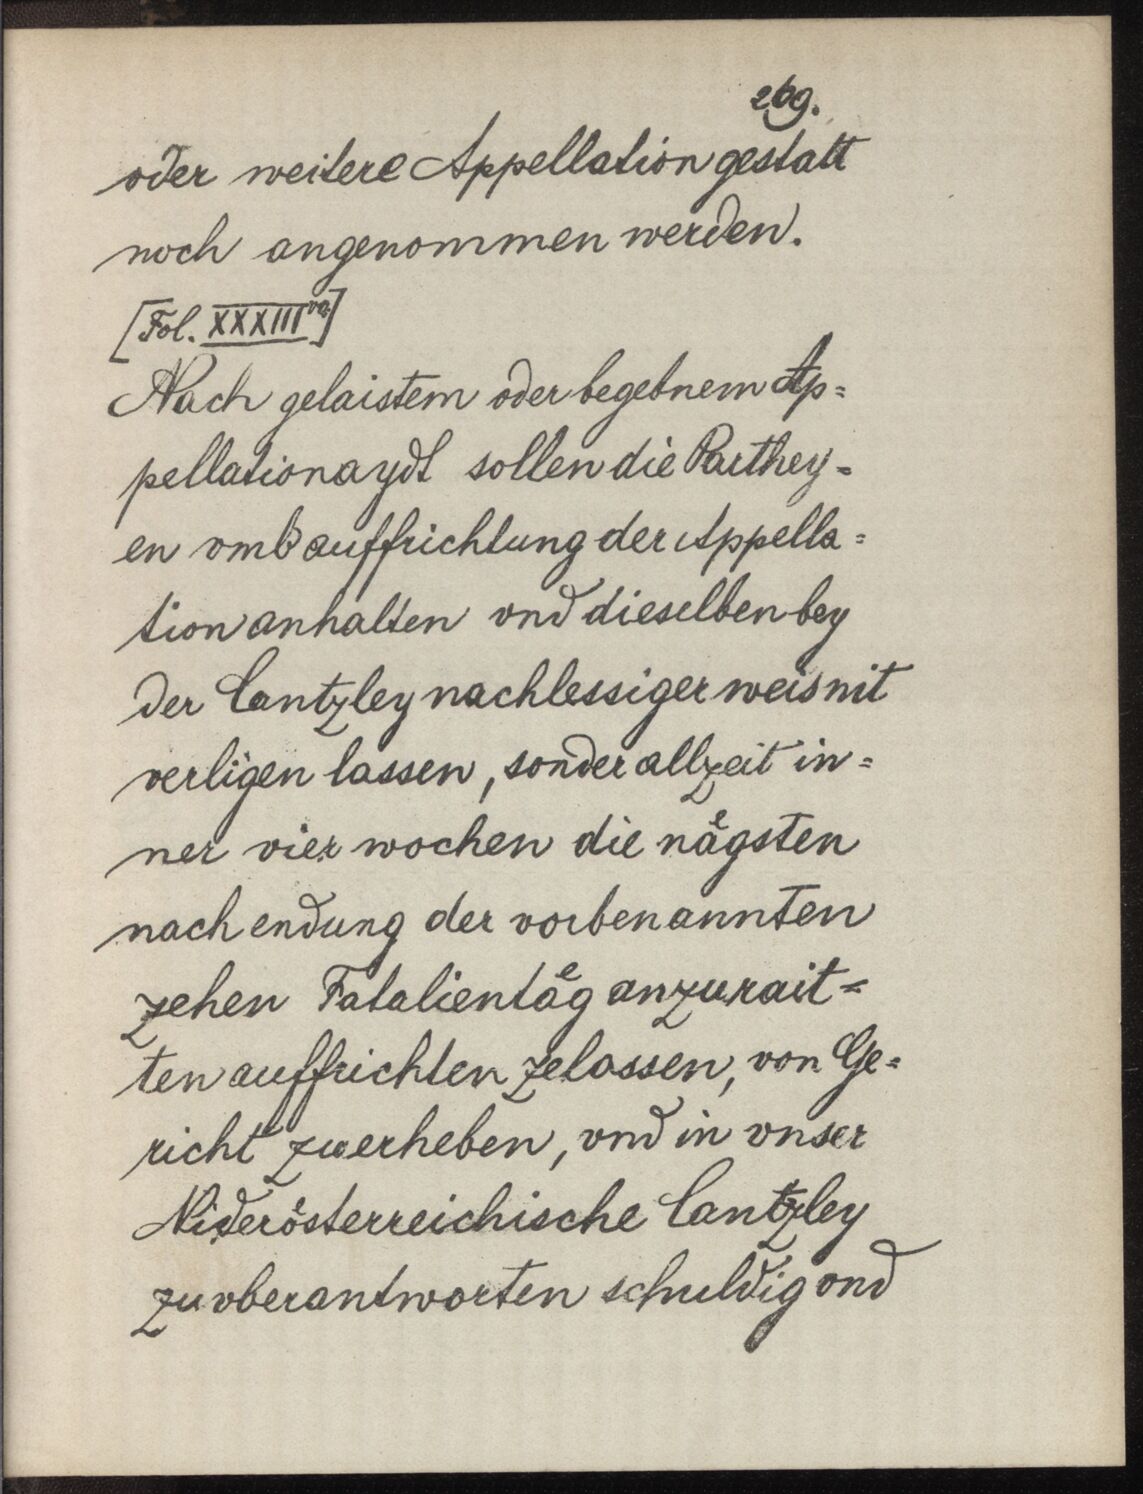 269.
oder weitere Appellation gestatt
noch angenommen werden.
[Fol. XXXIII va]
Nach gelaistem oder begebnem Ap=
pellationaydt sollen die Parthey=
en vmb auffrichtung der Appella=
tion anhalten vnd dieselben bey
der Cantzley nachlessiger weis nit
verligen lassen, sonder allzeit in=
ner vier wochen die naͤgsten
nach endung der vorbenannten
zehen Fatalientaͤg anzurait=
ten auffrichten zelassen, von Ge=
richt zuerheben, vnd in vnser
Niderösterreichische Cantzley
zu vberantworten schuldig vnd